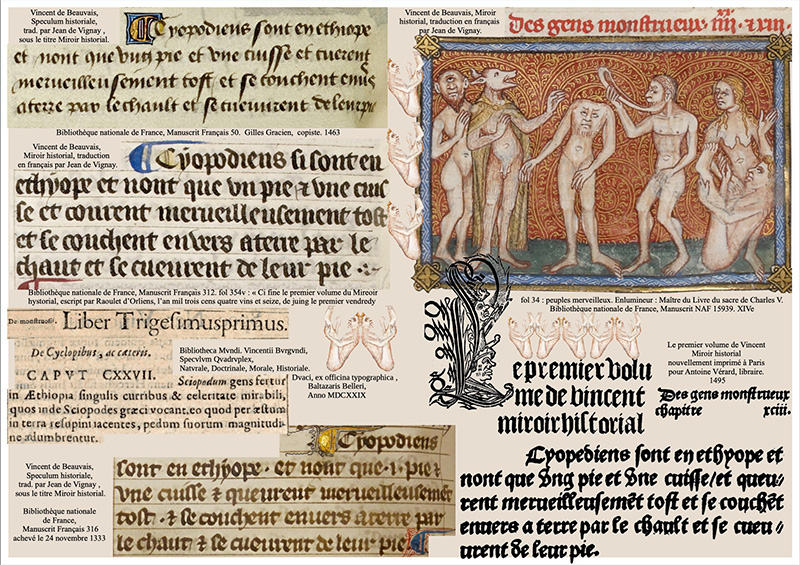 Vincent de Beauvais,
Speculum historiale,
trad. par Jean de Vignay ,
sous le titre Miroir historial.
Cyopodiens sont en ethiope
et nont que vng pie et vne cuisse et cueurent
merueilleusement tost et se couchent enuers
a terre par le chault et se cueuurent de leur pie
Bibliothèque nationale de France, Manuscrit Français 50. Gilles Gracien, copiste. 1463
Vincent de Beauvais,
Miroir historial, traduction
en français par Jean de Vignay.
Cyopodiens si sont en
ethyope et nont que vn pie et vne cuis
se et courent merueilleusement tost
et se couchent enuers a terre par le
chaut et se cueurent de leur pie
Bibliothèque nationale de France, Manuscrit Français 312. fol 354v : « Ci fine le premier volume du Mireoir
hystorial, escript par Raoulet d'Orliens, l'an mil trois cens quatre vins et seize, de juing le premier vendredy
De monstrosis. Liber Trigesimusprimus.
De Cyclopibus, ac cæteris.
CAPVT CXXVII.
Sciopodum gens fertur
in Æthiopia singulis curribus & celeritate mirabili,
quos inde Sciopodes græci vocant, eo quod per æstum
in terra resupini iacentes, pedum suorum magnitudi-
ne adumbrentur.
Bibliotheca Mvndi. Vincentii Bvrgvndi,
Specvlvm Qvadrvplex,
Natvrale, Doctrinale, Morale, Historiale.
Dvaci, ex officina typographica ,
Baltazaris Belleri,
Anno MDCXXIX
Vincent de Beauvais,
Speculum historiale,
trad. par Jean de Vignay ,
sous le titre Miroir historial.
Bibliothèque nationale
de France,
Manuscrit Français 316
achevé le 24 novembre 1333
Cyopodiens
sont en ethyope · et nont que ·i· pie &
vne cuisse & queurent merueilleusement
tost · & se couchent enuers a terre par
le chaut & se cueurent de leur pie
Vincent de Beauvais, Miroir
historial, traduction en français
par Jean de Vignay.
Des gens monstrueux iiii.xx.xiii.
fol 34 : peuples merveilleux. Enlumineur : Maître du Livre du sacre de Charles V.
Bibliothèque nationale de France, Manuscrit NAF 15939. XIVe
Le premier volu
me de vincent
miroir historial
Le premier volume de Vincent
Miroir historial
nouvellement imprimé à Paris
pour Antoine Vérard, libraire.
1495
Des gens monstrueux
chapitre xciii.
Cyopediens sont en ethyope et
nont que vng pie et vne cuisse/et queu/
rent merueilleusemẽt tost et se couchẽt
enuers a terre par le chault et se cueu/
urent de leur pie.